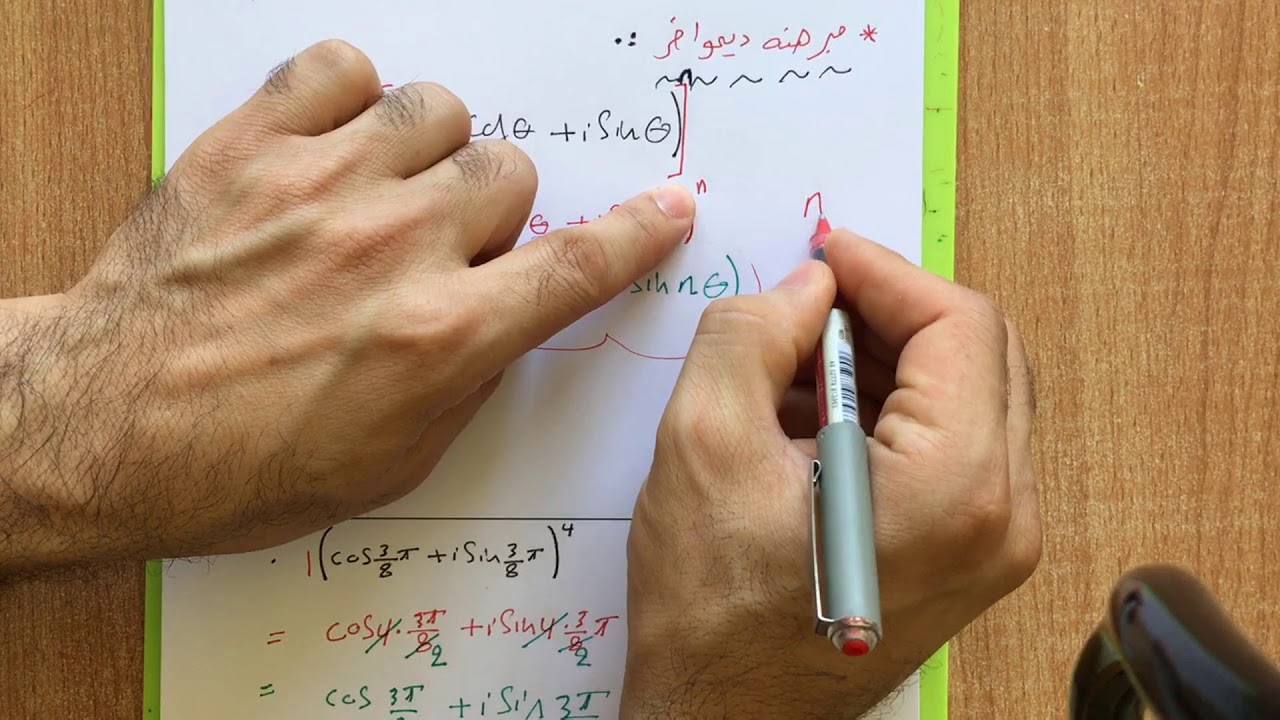 * مبرهنة ديموافر :.
θ + i sin θ)
n
n
θ + i
sin nθ)
1 (cos 3/8 π + i sin 3/8 π)^4
= cos 4 · 3π/8 2 + i sin 4 · 3/8 2 π
= cos 3π/2 + i sin 3π/2